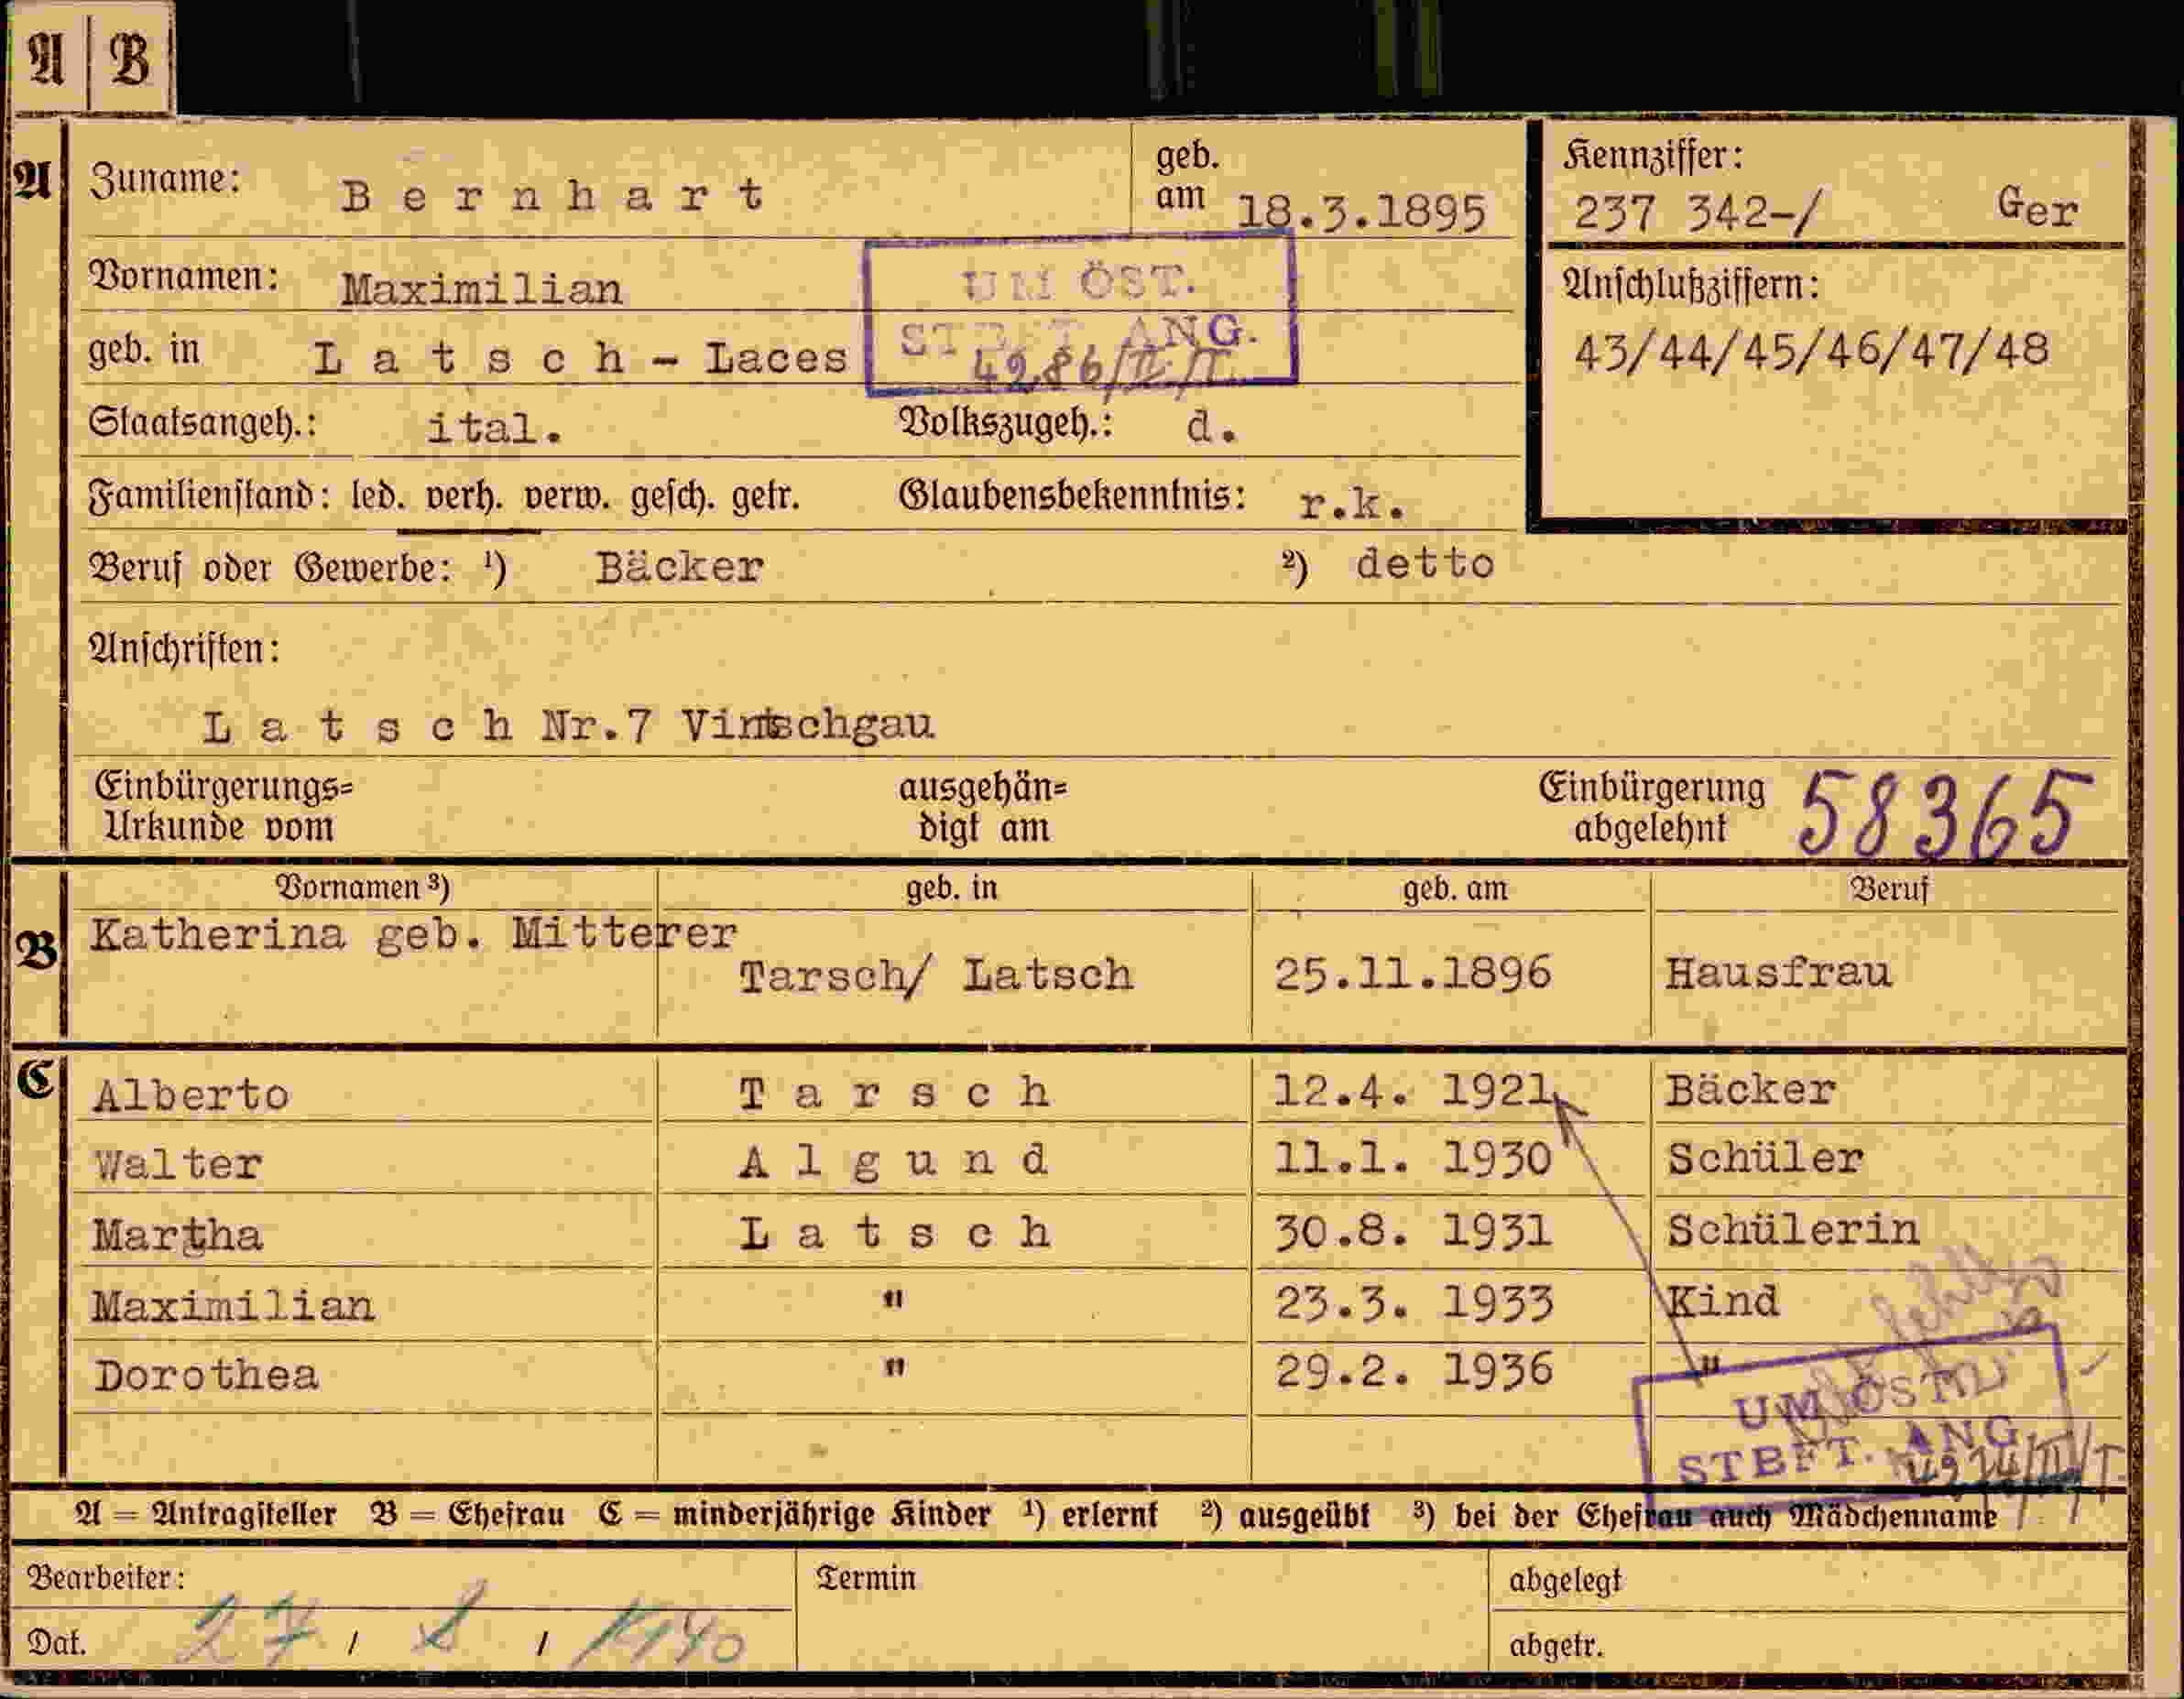 A B
A Zuname: Bernhart geb. am 18.3.1895
Kennziffer: 237 342-/ Ger
Vornamen: Maximilian
UM ÖST.
Anschlußziffern:
geb. in Latsch - Laces
ST ANG.
4286/II/T
43/44/45/46/47/48
Staatsangeh.: ital. Volkszugeh.: d.
Familienstand: led. verh. verw. gesch. getr. Glaubensbekenntnis: r.k.
Beruf oder Gewerbe: ¹) Bäcker ²) detto
Anschriften:
Latsch Nr.7 Vintschgau
Einbürgerungs= ausgehän= Einbürgerung 58365
Urkunde vom digt am abgelehnt
Vornamen ³) geb. in geb. am Beruf
B Katherina geb. Mitterer
Tarsch/ Latsch 25.11.1896 Hausfrau
C Alberto Tarsch 12.4. 1921 Bäcker
Walter Algund 11.1. 1930 Schüler
Martha Latsch 30.8. 1931 Schülerin
Maximilian " 23.3. 1933 Kind
Dorothea " 29.2. 1936 "
UM ÖST
STBFT. ANG
A = Antragsteller B = Ehefrau C = minderjährige Kinder ¹) erlernt ²) ausgeübt ³) bei der Ehefrau auch Mädchenname
Bearbeiter: Termin abgelegt
Dat. 27 / 8 / 1940 abgetr.